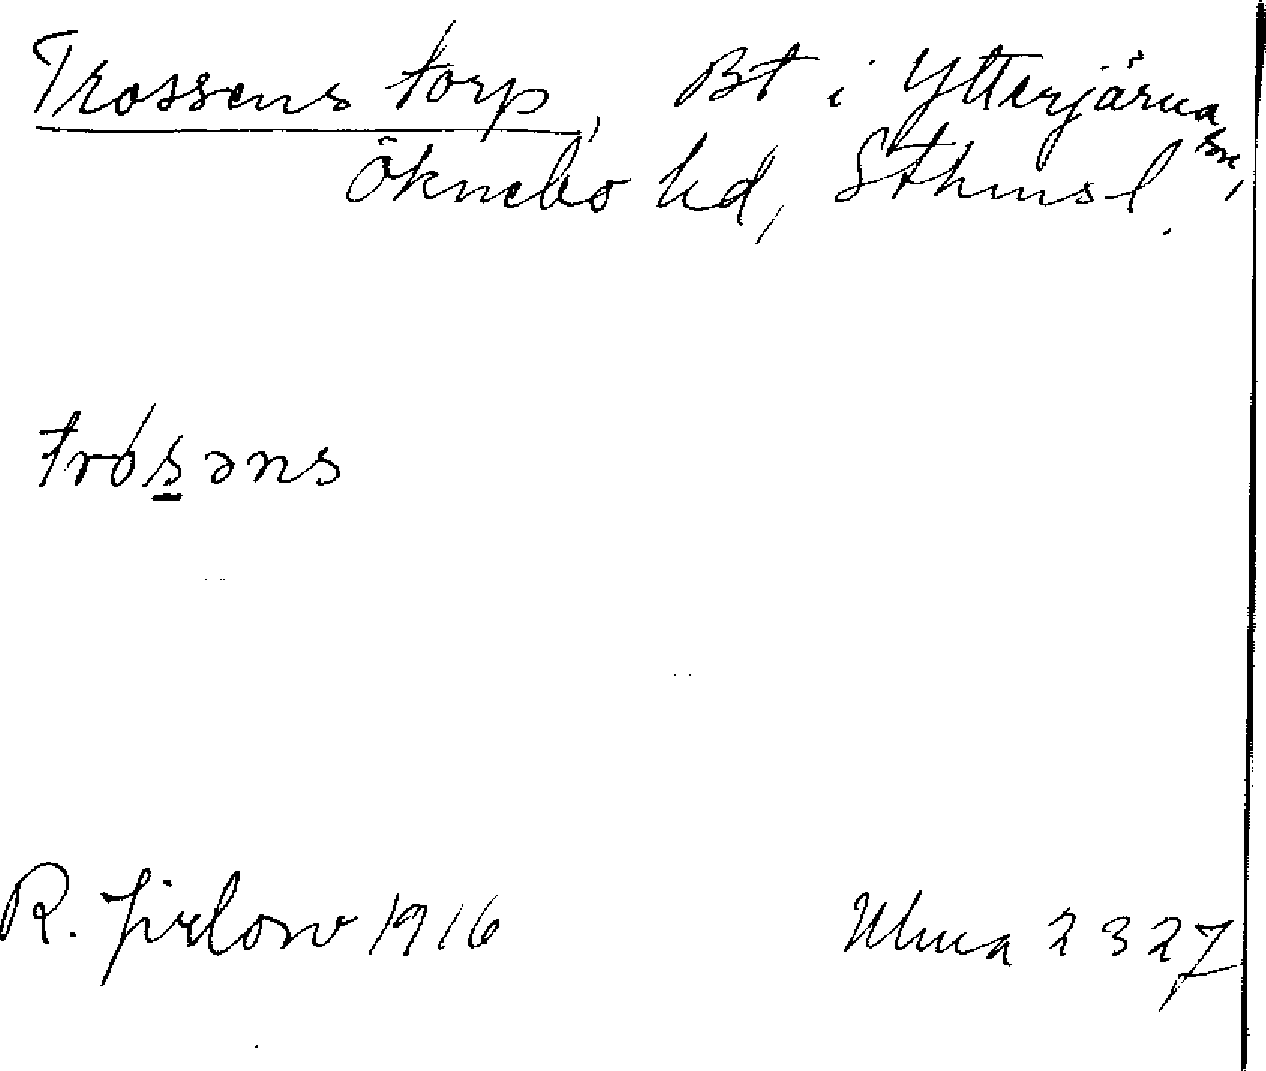 Trossens torp, Bt i Ytterjärna sn,
Öknebo hd, Sthmsl.
trós̲əns
R. Jirlow 1916 Ulma 2327